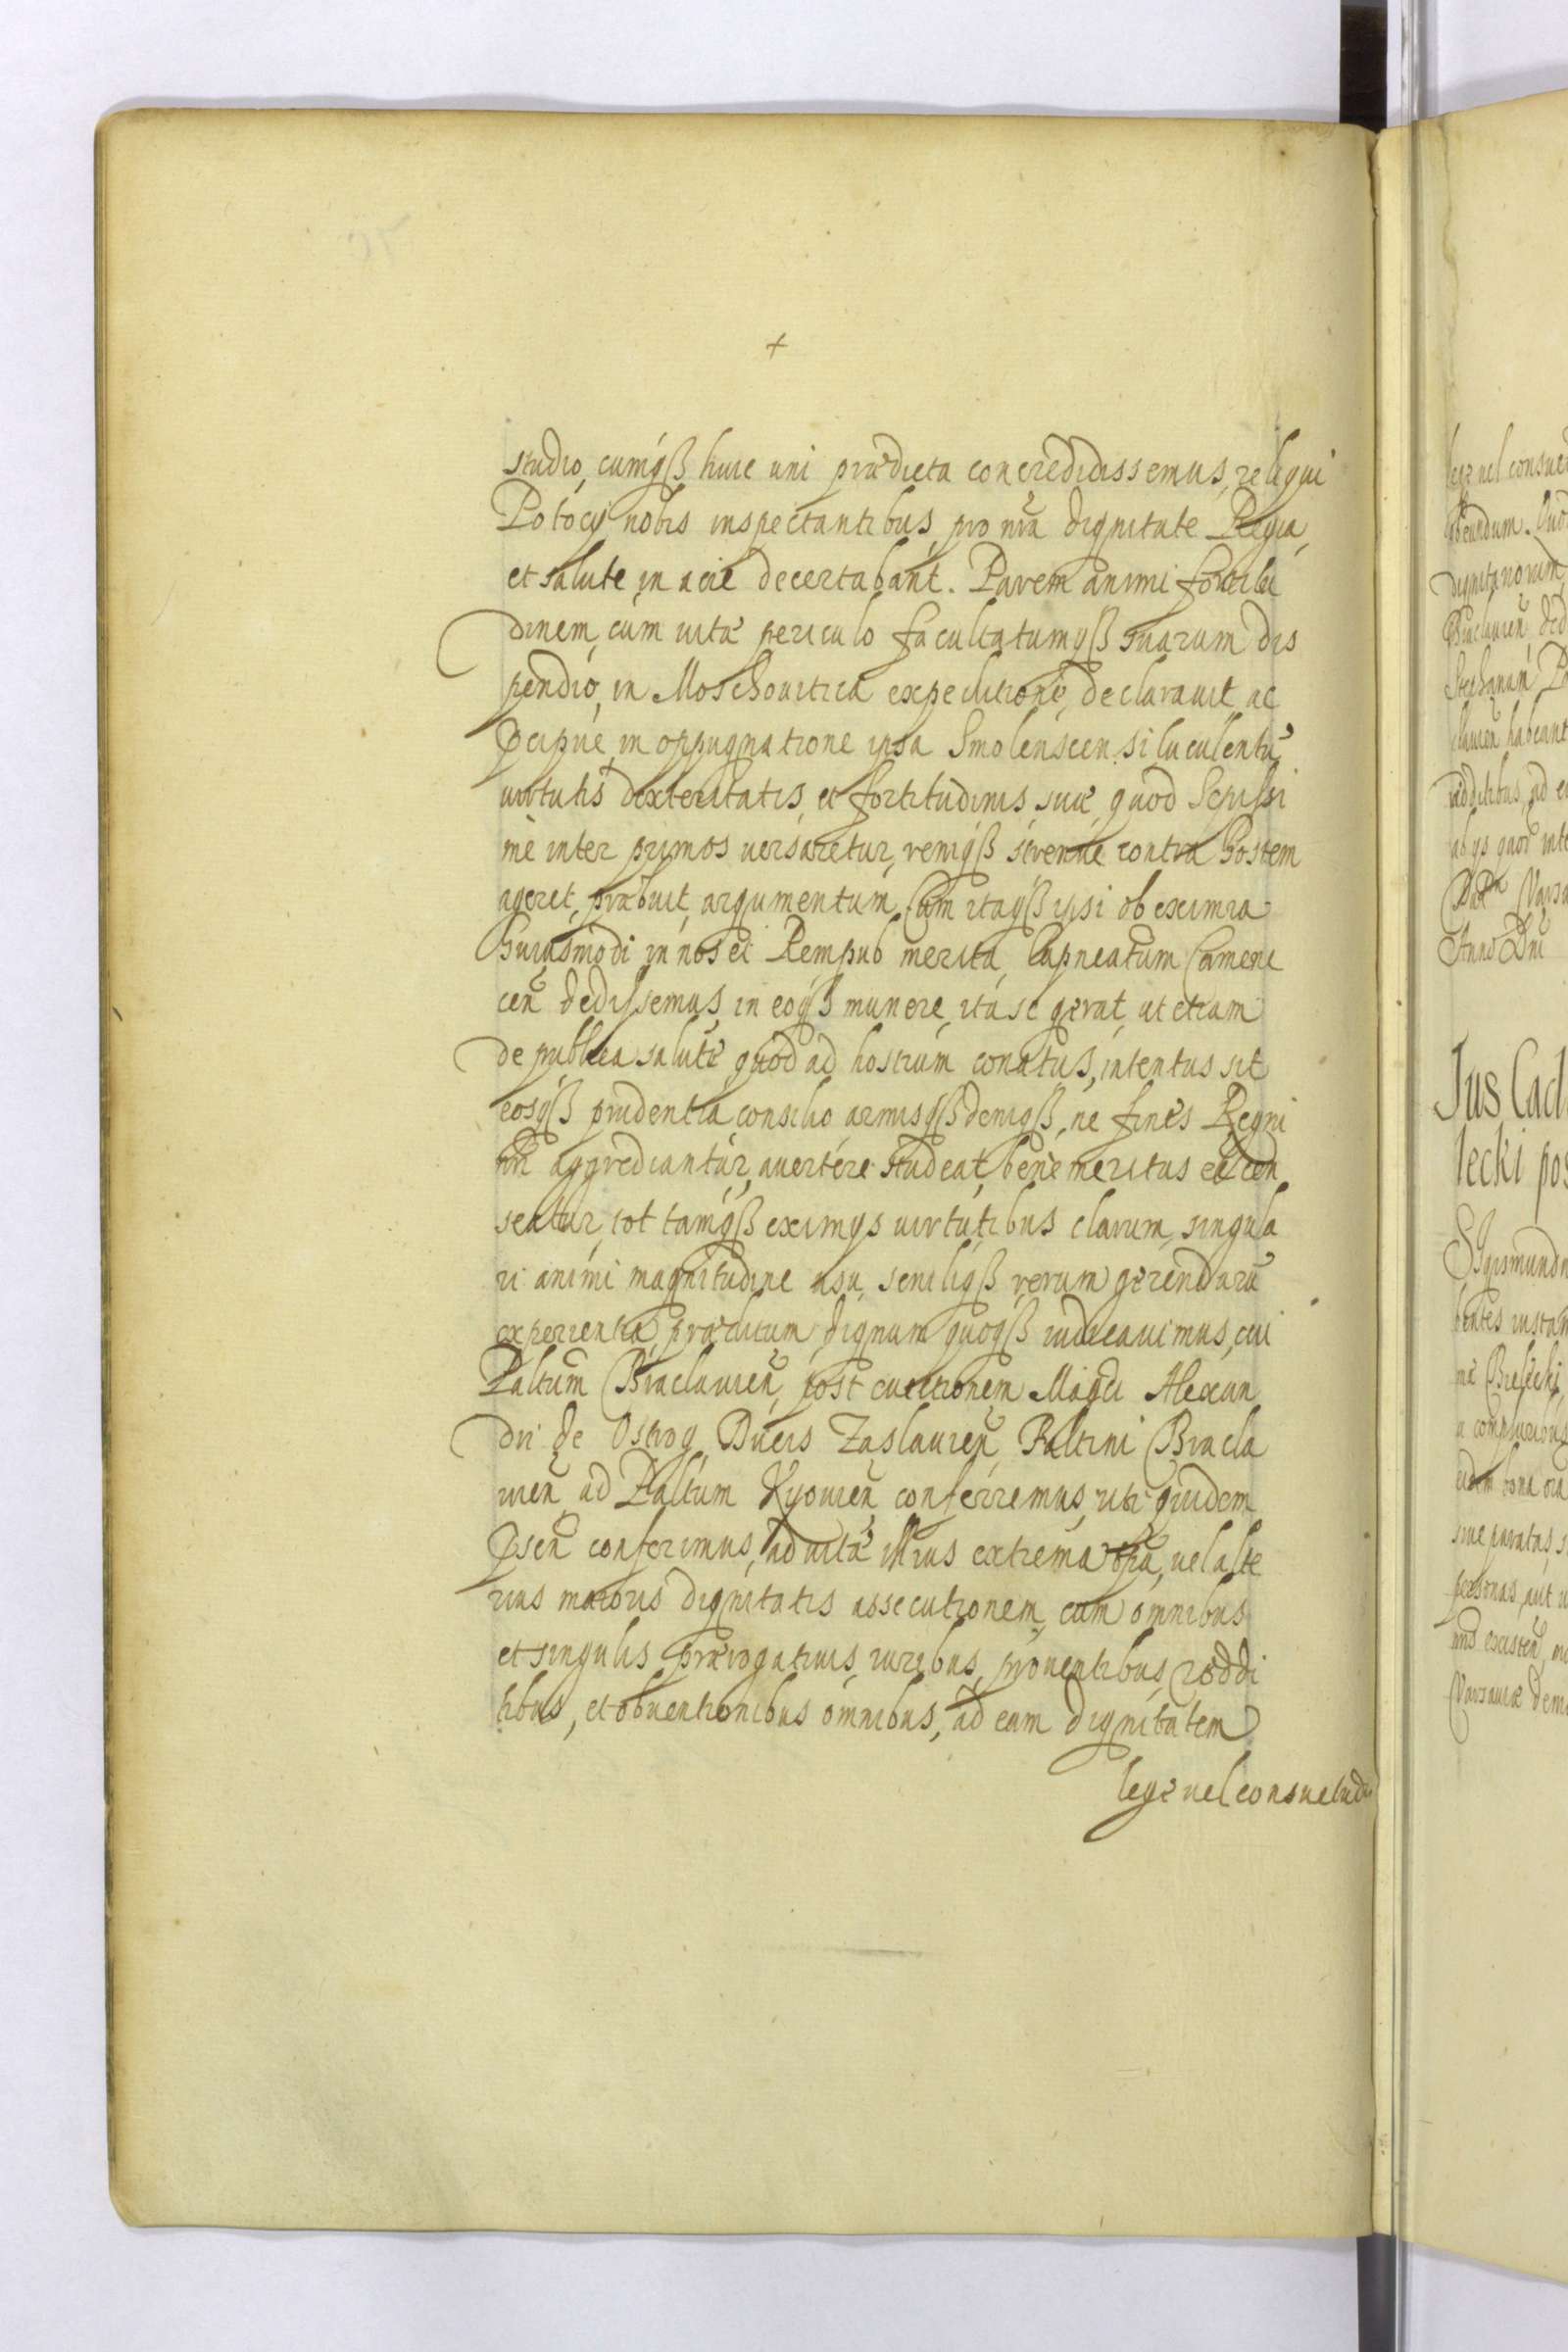 +
studio, cumqß huic uni prædicta concredidissemus, reliqui
Potocy nobis inspectantibus, pro nra dignitate Regia,
et salute in acie decertabant. Parem animi fortitu
dinem, cum vitæ periculo facultatumqß suarum dis
pendio, in Moschovitica expeditione, declaravit, ac
pcipue, in oppugnatione ipsa Smolenscen. si luculentū
virtutis dexteritatis, et fortitudinis suæ, quod sepissi
me inter primos versaretur, remqß strenue contra hostem
ageret, præbuit, argumentum, Cum itaqß ipsi ob eximia
huiusmodi in nos et Rempub merita, Capneatum Camene
cen dedissemus, in eoqß munere, ita se gerat, ut etiam
de publica salute, quod ad hostium conatus, intentus sit
eosqß prudentia, consilio, armisqß deniqß, ne fines Regni
nri aggrediantur, avertere studeat, bene meritus et cen
seatur, tot tamqß eximys virtutibus clarum, singula
ri animi magnitudine usu, seniliqß rerum gerendarū
experientia, præditum, dignum quoqß iudicavimus, cui
Paltum Braclavien, post evectionem Magci Alexan
dri de Ostrog Ducis Zaslavien, Paltini Bracla
vien, ad Paltum Kyovien, conferremus, uti quidem
psen conferimus, ad vitæ illius extrema tpra, vel alte
rius maioris dignitatis assecutionem, cum omnibus
et singulis prærogativis, iuribus, proventibus, reddi
tibus, et obventionibus omnibus, ad eam dignitatem
lege vel consuetudi
lege vel consue
dignitariorum
Braclavien ded
Stephanum Po
clavien habeant
redditibus, ad e
ab ys quor inte
Dat Varsa
Anno Dni
Jus Cad
lecki pos
Sigismundu
bentes instan
e compluribus
eadem bona ora
sive paratas, s
personas, aut
Varsaviæ dem